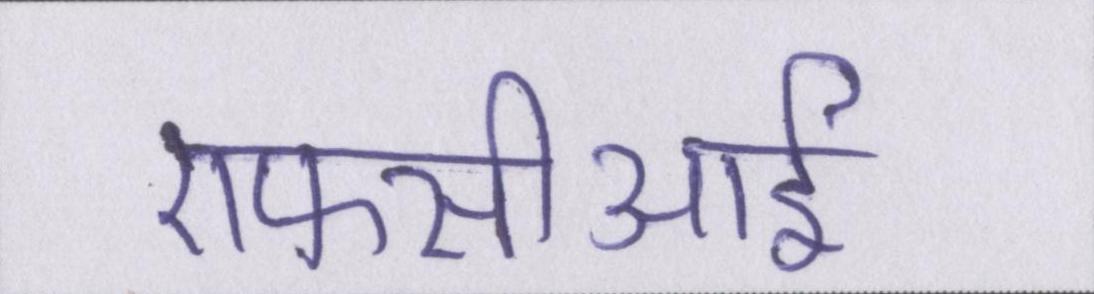 एफसीआई